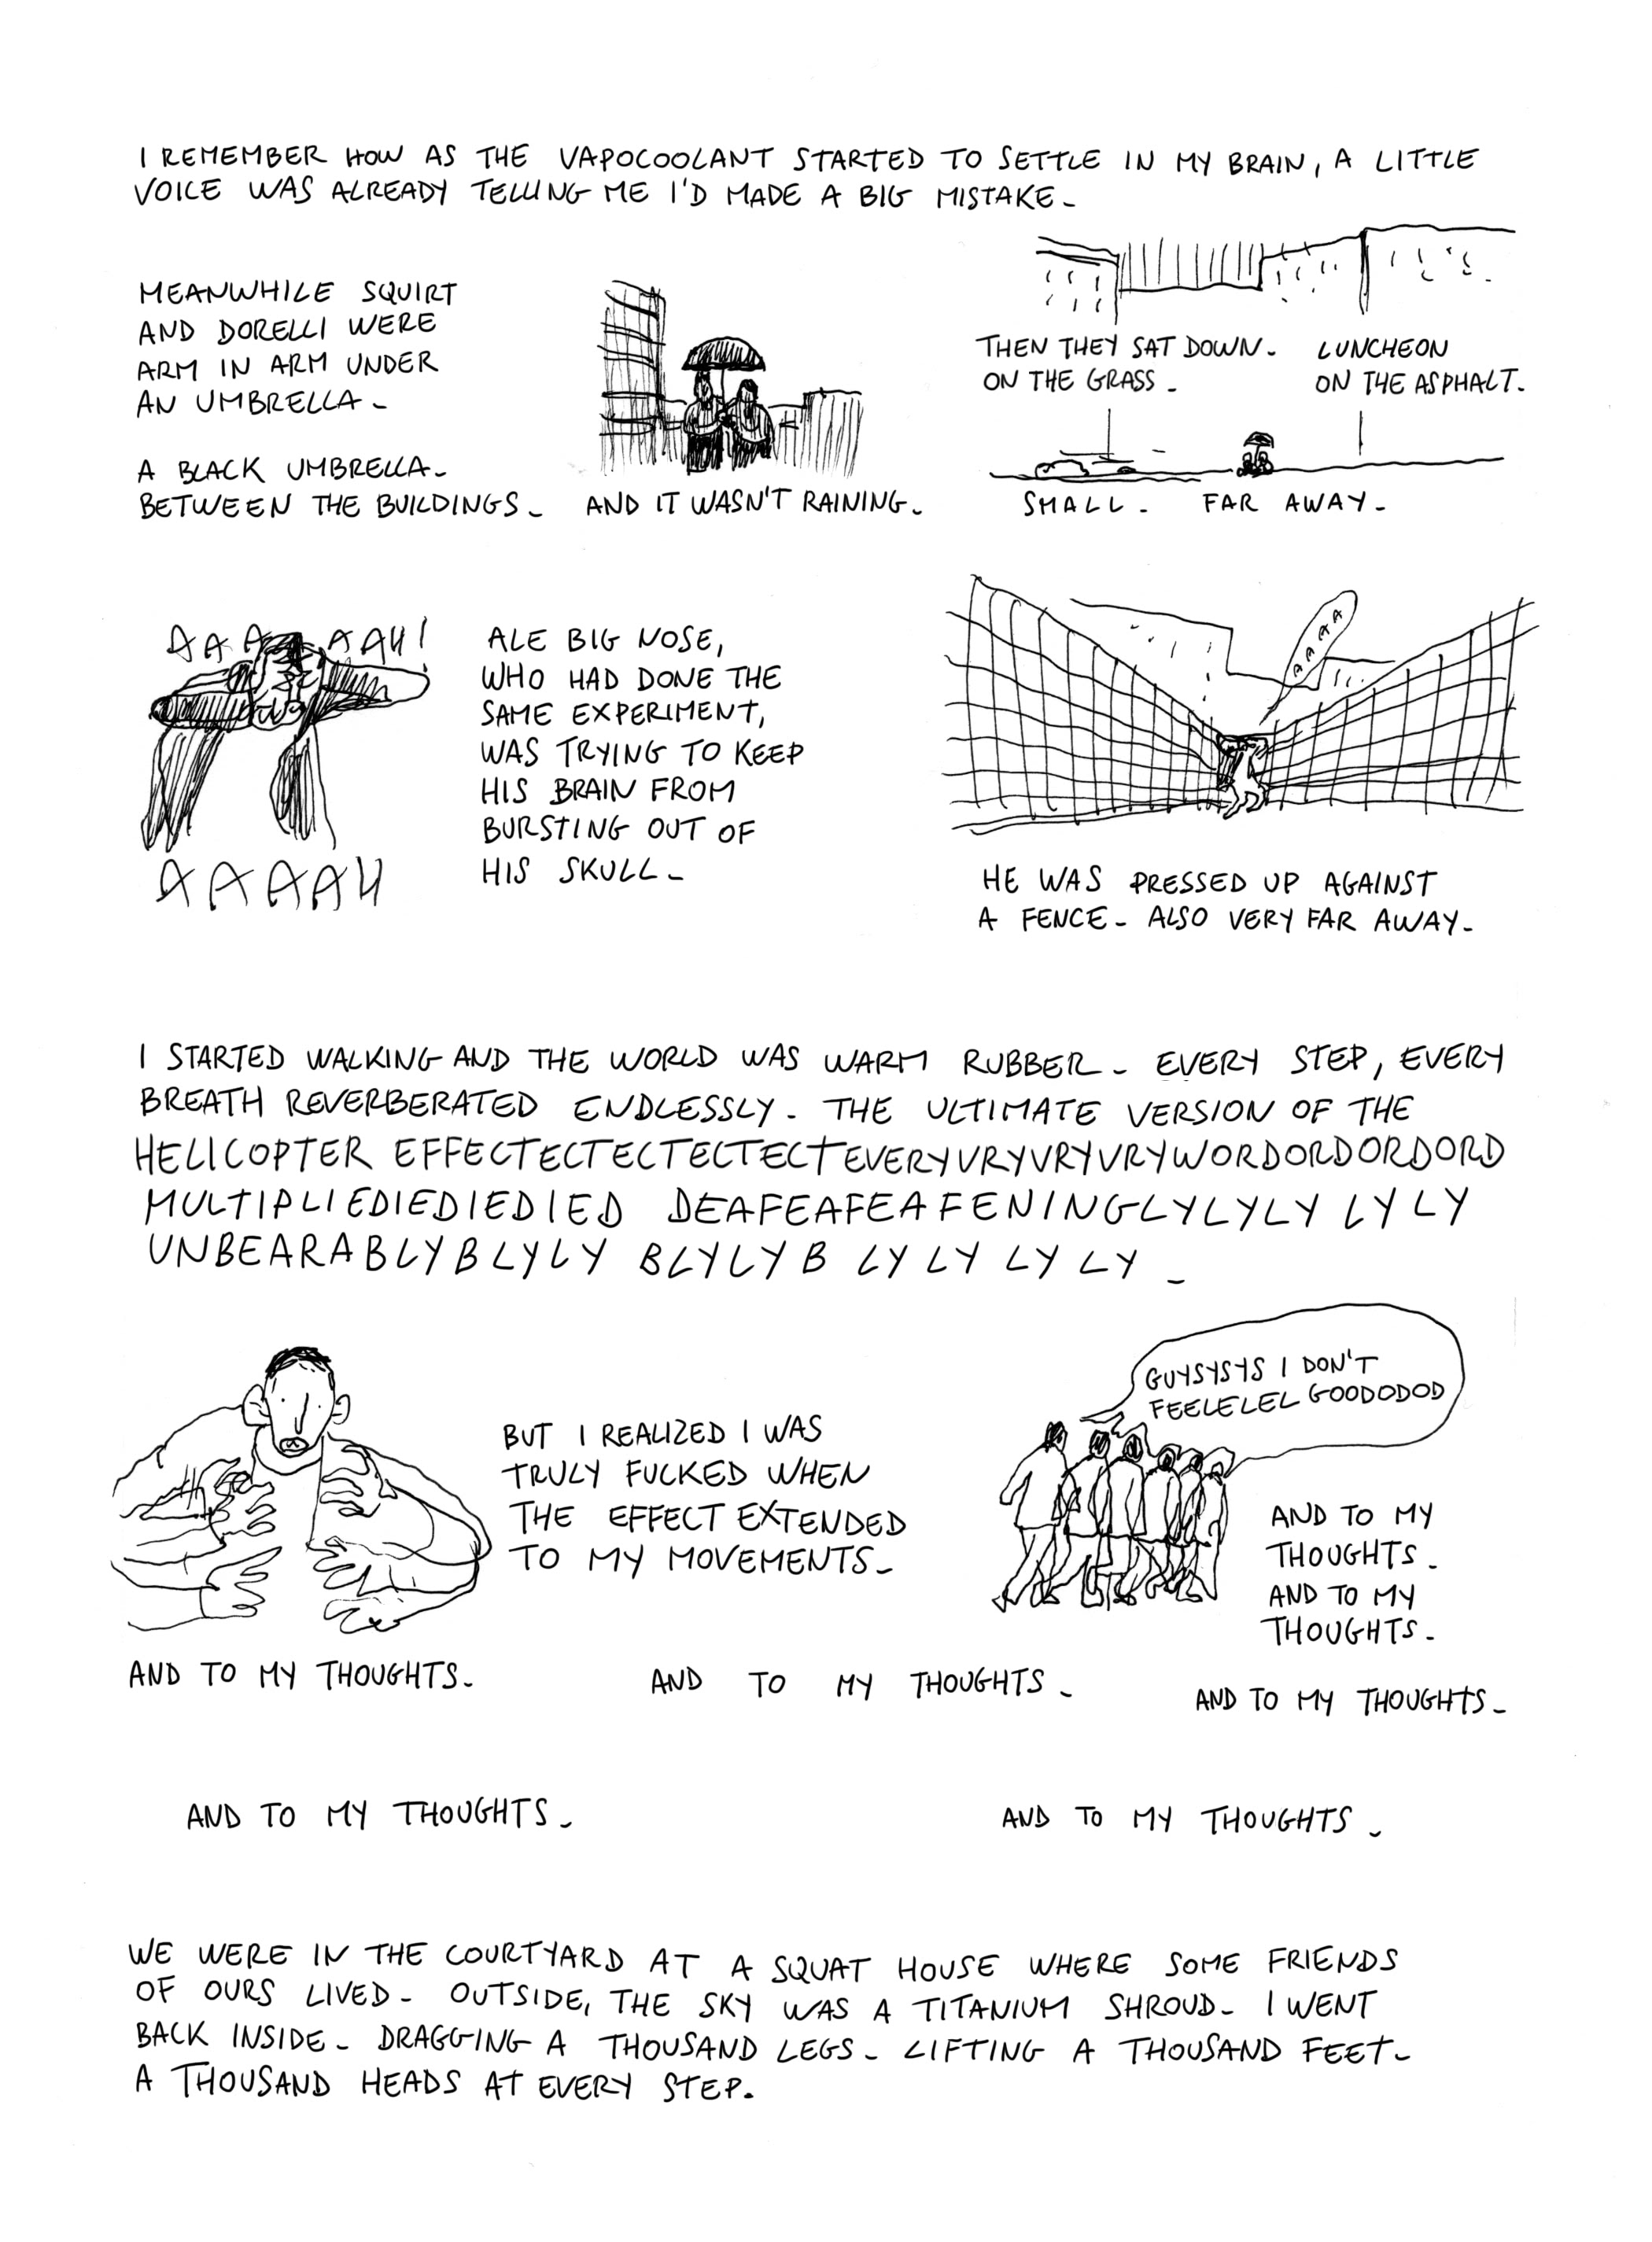 I REMEMBER HOW AS THE VAPOCOOLANT STARTED TO SETTLE IN MY BRAIN, A LITTLE
VOICE WAS ALREADY TELLING ME I'D MADE A BIG MISTAKE_
MEANWHILE SQUIRT
AND DORELLI WERE
ARM IN ARM UNDER
AN UMBRELLA_
A BLACK UMBRELLA_
BETWEEN THE BUILDINGS_
AND IT WASN'T RAINING_
THEN THEY SAT DOWN_
ON THE GRASS_
LUNCHEON
ON THE ASPHALT.
SMALL_ FAR AWAY_
AAAAAH!
AAAAH
ALE BIG NOSE,
WHO HAD DONE THE
SAME EXPERIMENT,
WAS TRYING TO KEEP
HIS BRAIN FROM
BURSTING OUT OF
HIS SKULL_
AAAA
HE WAS PRESSED UP AGAINST
A FENCE_ ALSO VERY FAR AWAY_
I STARTED WALKING AND THE WORLD WAS WARM RUBBER_ EVERY STEP, EVERY
BREATH REVERBERATED ENDLESSLY_ THE ULTIMATE VERSION OF THE
HELICOPTER EFFECTECTECTECTECTEVERYVRYVRYVRYWORDORDORDORD
MULTIPLIEDIEDIEDIED DEAFEAFEAFENINGLYLYLY LY LY
UNBEARABLYBLYLY BLYLYB LY LY LY LY_
BUT I REALIZED I WAS
TRULY FUCKED WHEN
THE EFFECT EXTENDED
TO MY MOVEMENTS_
GUYSYSYS I DON'T
FEELELEL GOODODOD
AND TO MY
THOUGHTS_
AND TO MY
THOUGHTS_
AND TO MY THOUGHTS_
AND TO MY THOUGHTS_
AND TO MY THOUGHTS_
AND TO MY THOUGHTS_
AND TO MY THOUGHTS_
WE WERE IN THE COURTYARD AT A SQUAT HOUSE WHERE SOME FRIENDS
OF OURS LIVED_ OUTSIDE, THE SKY WAS A TITANIUM SHROUD_ I WENT
BACK INSIDE_ DRAGGING A THOUSAND LEGS_ LIFTING A THOUSAND FEET_
A THOUSAND HEADS AT EVERY STEP.